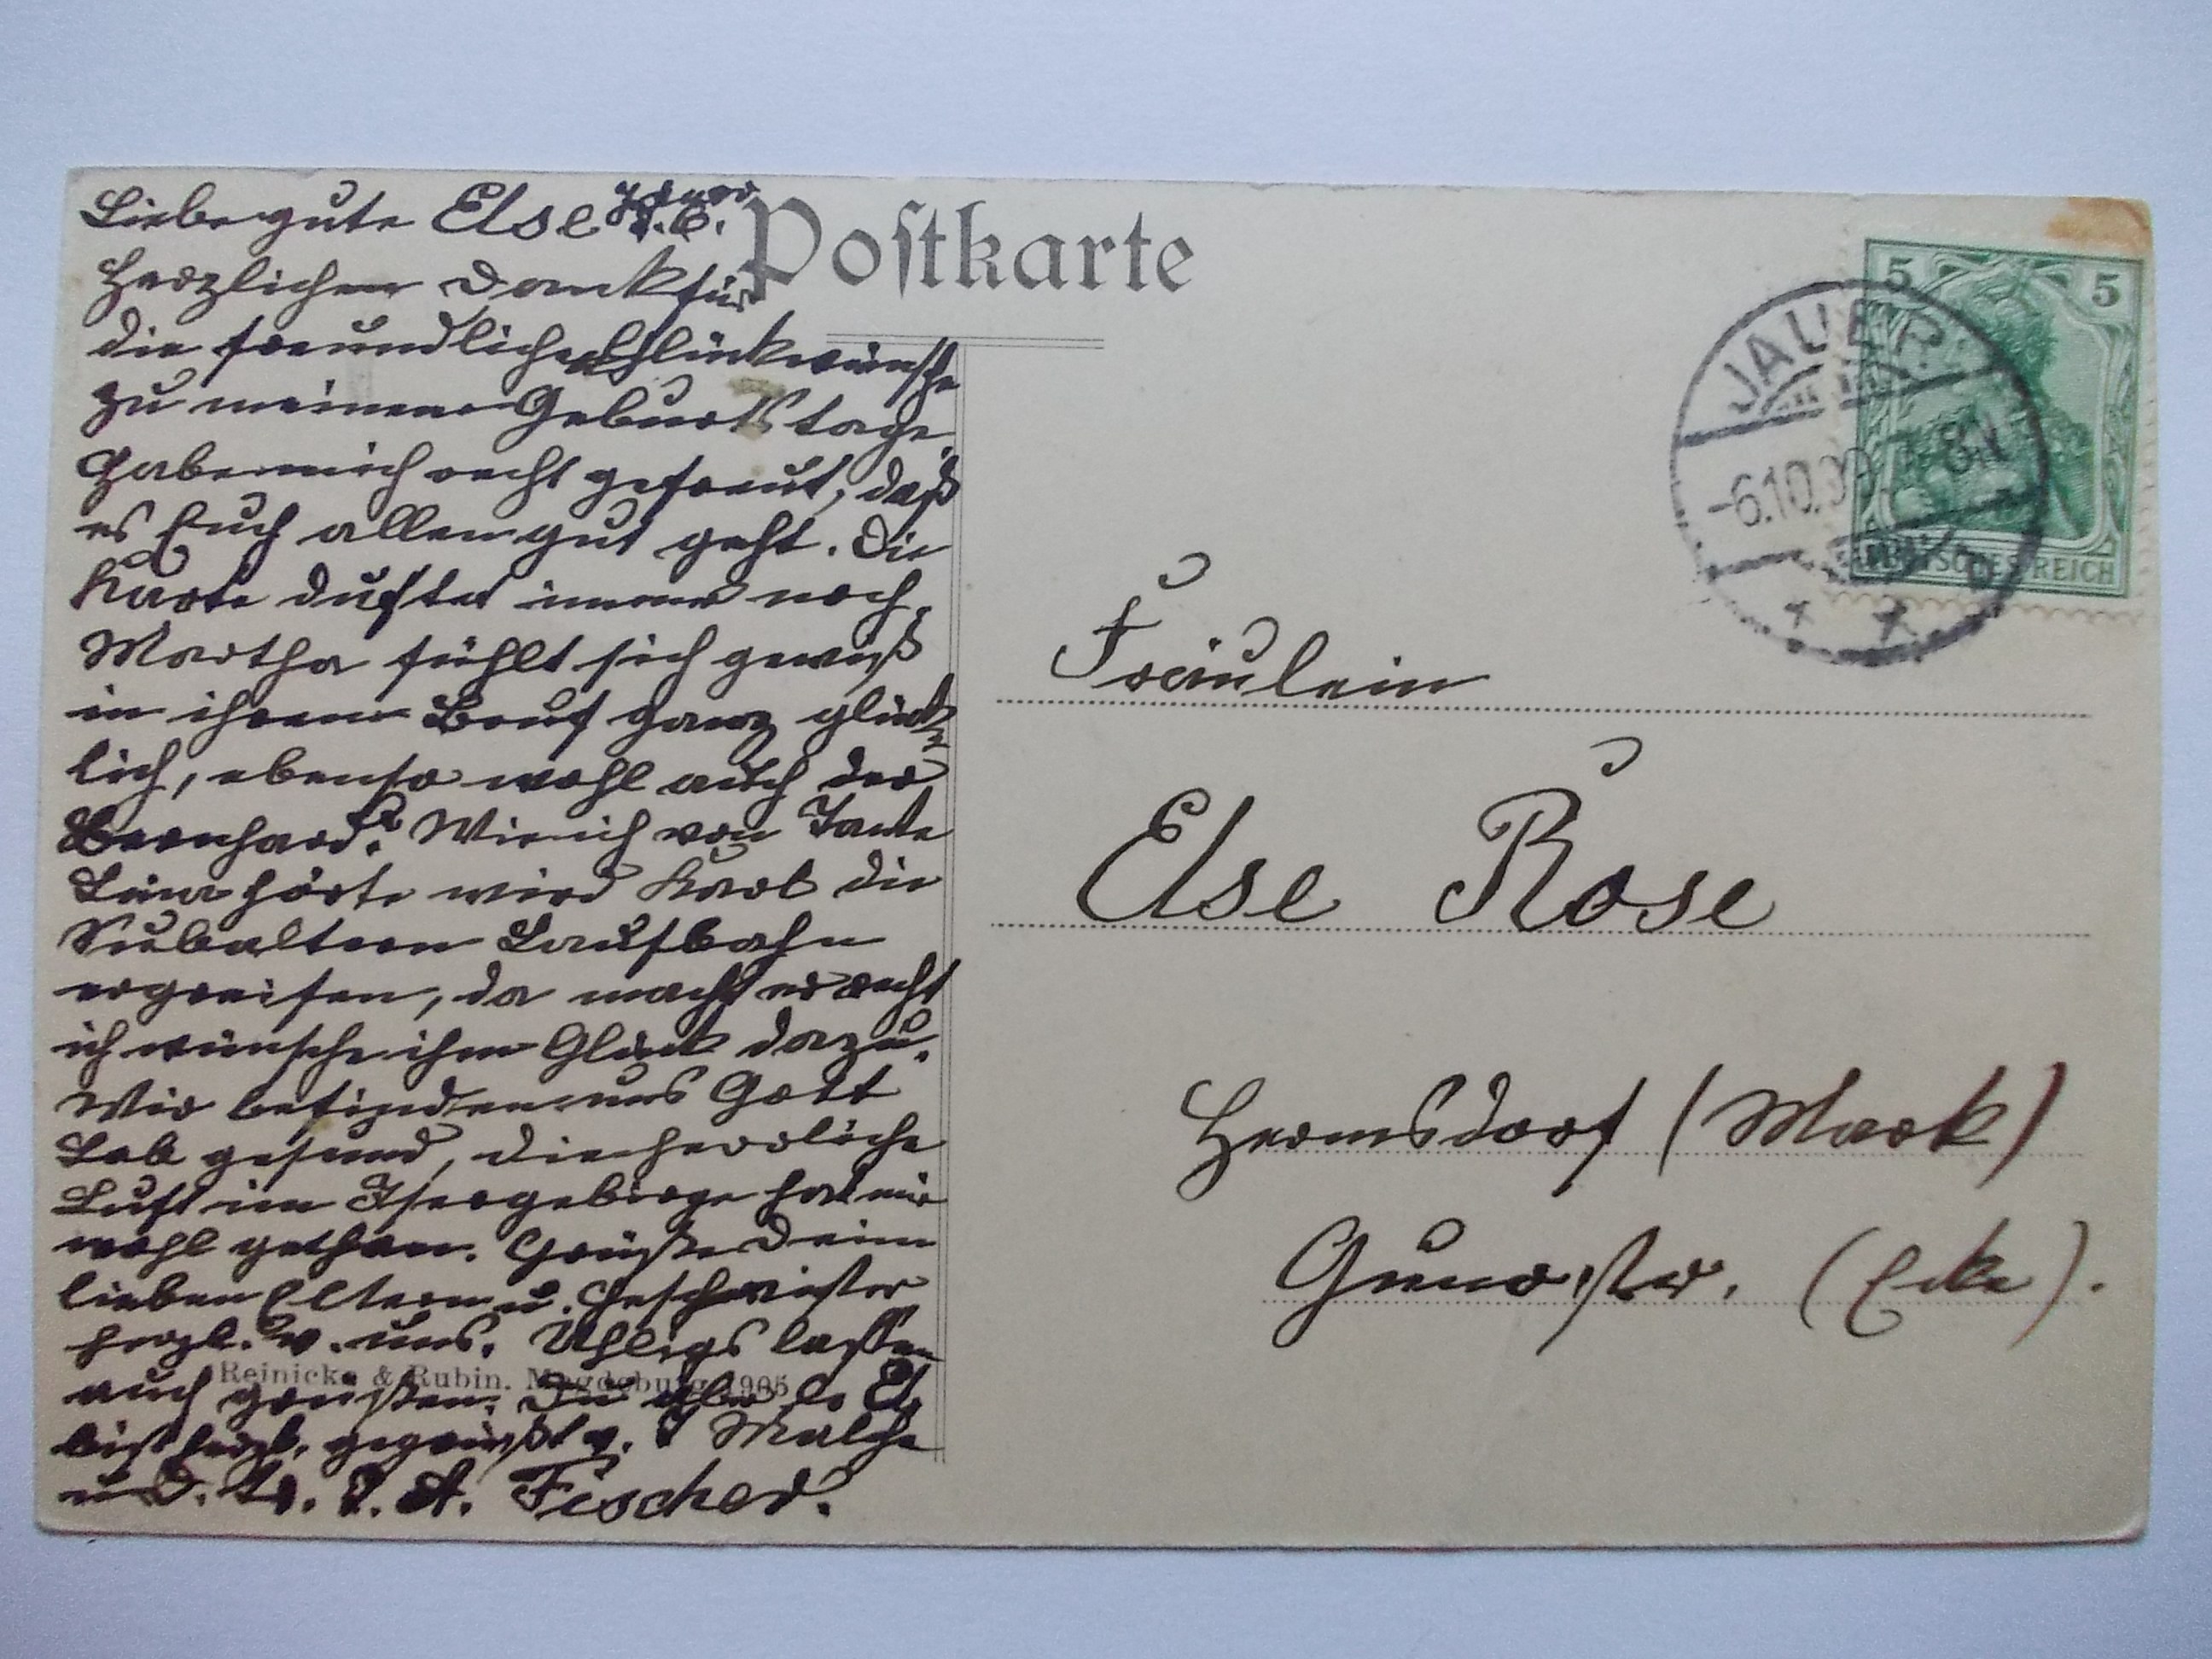 Liebe gute Else
Herzlichen Dank für
die freundlichen Glückwünsche
zu meinem Geburtstage,
habe mich recht gefreut, daß
es Euch allen gut geht. Die
Karte duftet immer noch,
Martha fühlt sich gewiß
in ihrem Beruf ganz glück-
lich, ebenso wohl auch der
Bernhard? Wie ich von Tante
Lina hörte wird Karl die
Subaltern Laufbahn
ergreifen, da macht er recht
ich wünsche ihm Glück dazu.
Wir befinden uns Gott
Lob gesund, die herrliche
Luft im Isergebirge hat mir
wohl gethan. Grüße Deine
lieben Eltern u. Geschwister
herzl. v. uns. Uhligs lassen
auch grüßen. Du aber
bist herzl. gegrüßt v.
u. D. A. Fischer.
Postkarte
Reinicke & Rubin. Magdeburg 1905
5 5
DEUTSCHES REICH
JAUER
-6.10.09 7-8N
Fräulein
Else Rose
Hermsdorf (Mark)
(Ecke).